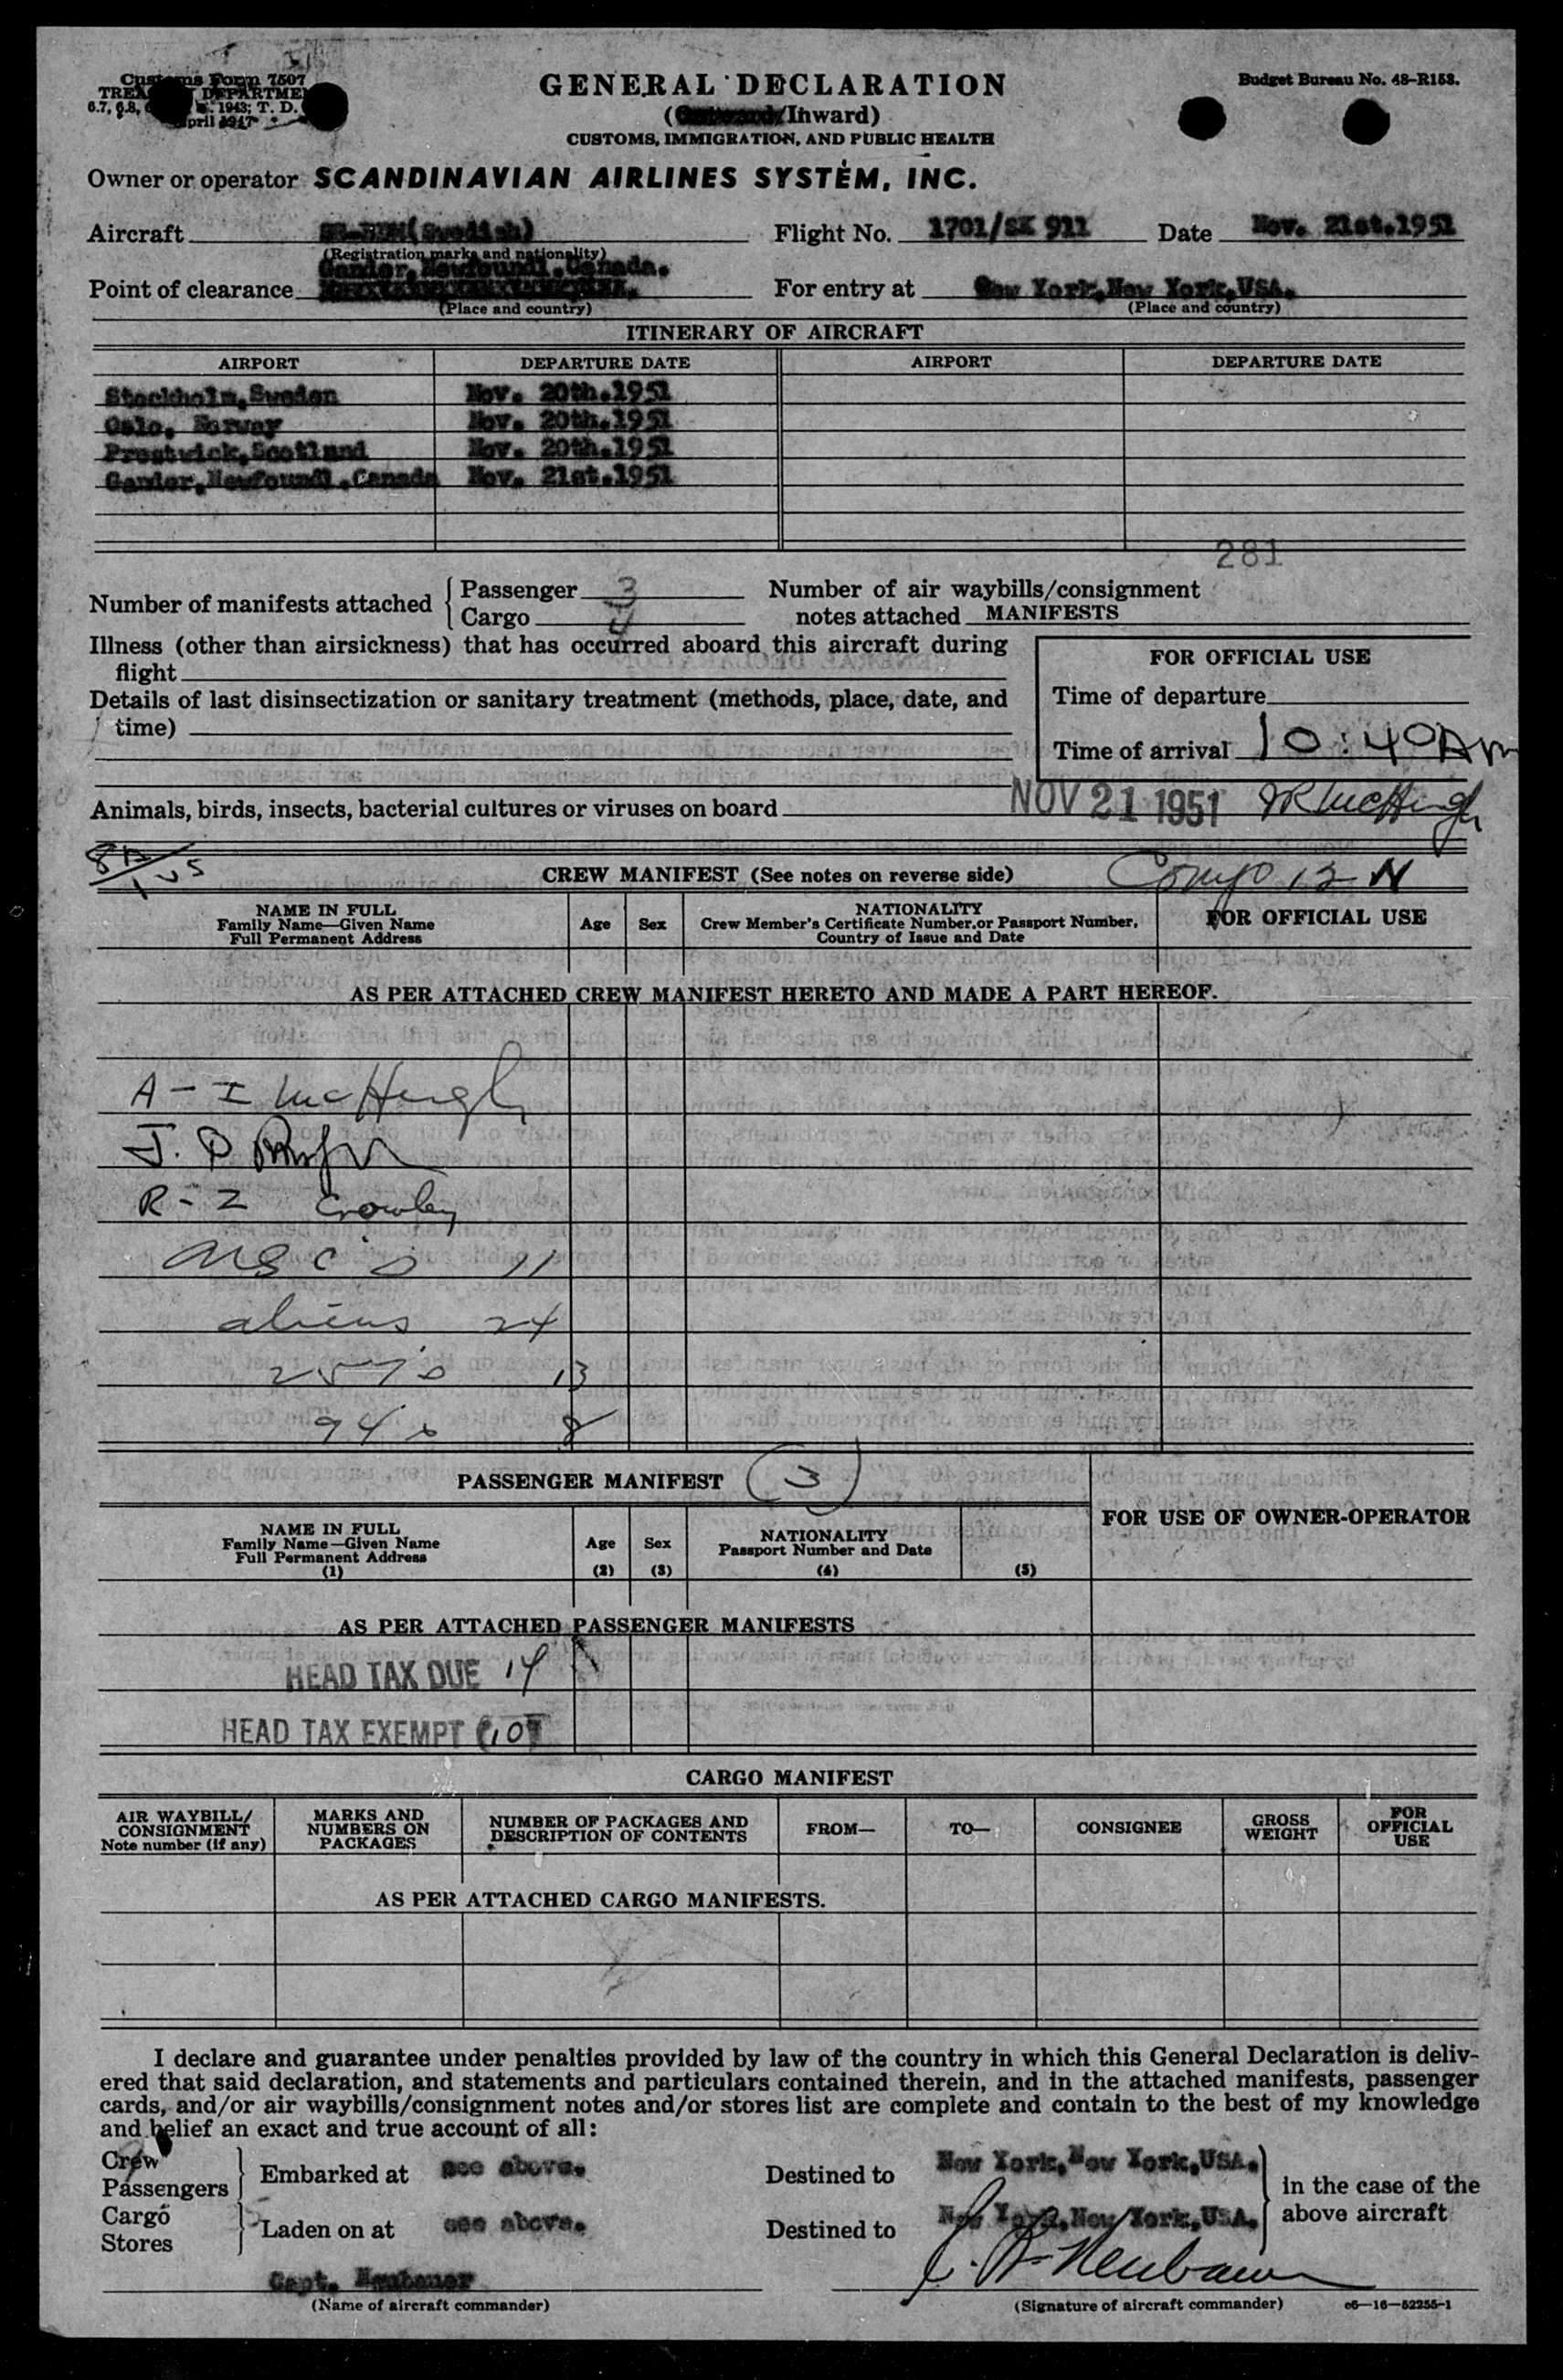 Customs Form 7507
TREASURY DEPARTMENT
1943; T. D.
April 1947
GENERAL DECLARATION
(Outward/Inward)
CUSTOMS, IMMIGRATION, AND PUBLIC HEALTH
Budget Bureau No. 48-R153.
Owner or operator SCANDINAVIAN AIRLINES SYSTEM, INC.
Aircraft (Swedish) Flight No. 1701/SK 911 Date Nov. 21st.1951
(Registration marks and nationality)
Gander, Newfoundl.Canada.
Point of clearance For entry at New York,New York,USA.
(Place and country) (Place and country)
ITINERARY OF AIRCRAFT
AIRPORT DEPARTURE DATE AIRPORT DEPARTURE DATE
Stockholm,Sweden Nov. 20th.1951
Oslo, Norway Nov. 20th.1951
Prestwick,Scotland Nov. 20th.1951
Gander,Newfoundl.Canada Nov. 21st.1951
281
Number of manifests attached { Passenger 3 Number of air waybills/consignment
Cargo 4 notes attached MANIFESTS
Illness (other than airsickness) that has occurred aboard this aircraft during
flight
Details of last disinsectization or sanitary treatment (methods, place, date, and
time)
FOR OFFICIAL USE
Time of departure
Time of arrival 10:40AM
Animals, birds, insects, bacterial cultures or viruses on board NOV 21 1951 McHugh
CREW MANIFEST (See notes on reverse side)
NAME IN FULL
Family Name—Given Name
Full Permanent Address
Age Sex
NATIONALITY
Crew Member's Certificate Number or Passport Number,
Country of Issue and Date
FOR OFFICIAL USE
AS PER ATTACHED CREW MANIFEST HERETO AND MADE A PART HEREOF.
A - I McHugh
R - 2 Crowley
11
aliens 24
257's 13
94's 8
PASSENGER MANIFEST (3)
FOR USE OF OWNER-OPERATOR
NAME IN FULL
Family Name—Given Name
Full Permanent Address
(1)
Age
(2)
Sex
(3)
NATIONALITY
Passport Number and Date
(4) (5)
AS PER ATTACHED PASSENGER MANIFESTS
HEAD TAX DUE 14
HEAD TAX EXEMPT 10
CARGO MANIFEST
AIR WAYBILL/
CONSIGNMENT
Note number (if any)
MARKS AND
NUMBERS ON
PACKAGES
NUMBER OF PACKAGES AND
DESCRIPTION OF CONTENTS
FROM— TO— CONSIGNEE
GROSS
WEIGHT
FOR
OFFICIAL
USE
AS PER ATTACHED CARGO MANIFESTS.
I declare and guarantee under penalties provided by law of the country in which this General Declaration is deliv-
ered that said declaration, and statements and particulars contained therein, and in the attached manifests, passenger
cards, and/or air waybills/consignment notes and/or stores list are complete and contain to the best of my knowledge
and belief an exact and true account of all:
Crew
Passengers } Embarked at see above. Destined to New York,New York,USA.
Cargo
Stores } Laden on at see above. Destined to New York,New York,USA.
} in the case of the
above aircraft
Capt. Neubauer
(Name of aircraft commander)
Neubauer
(Signature of aircraft commander) c6—16—52255-1